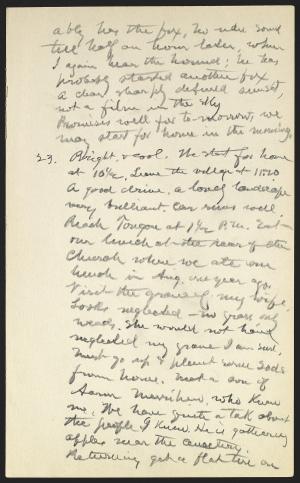 ably has the fox, No more sound
till half an hour later, when
I again hear the hound; he has
probably started another fox
A clear sharply defined sunset,
not a film in the sky
Promises well for to-morrow, we
may start for home in the morning.
23. Bright & cool. We start for home
at 10½, Leave the village at 11:20
A good drive, a lovely landscape
very brilliant. Car runs well.
Reach Tongore at 1½ P.M. Eat
our lunch at the rear of the
Church where we ate our
lunch in Aug. one year ago.
Visit the grave of my wife.
Looks neglected — no grass only
weeds. She would not have
neglected my grave I am sure,
Must go up & plant some Sods
from home. Meet a son of
Aaron Merrihew, who knew
me. We have quite a talk about
the people I knew. He is gathering
apples near the cemetery.
Returning get a flat tire on